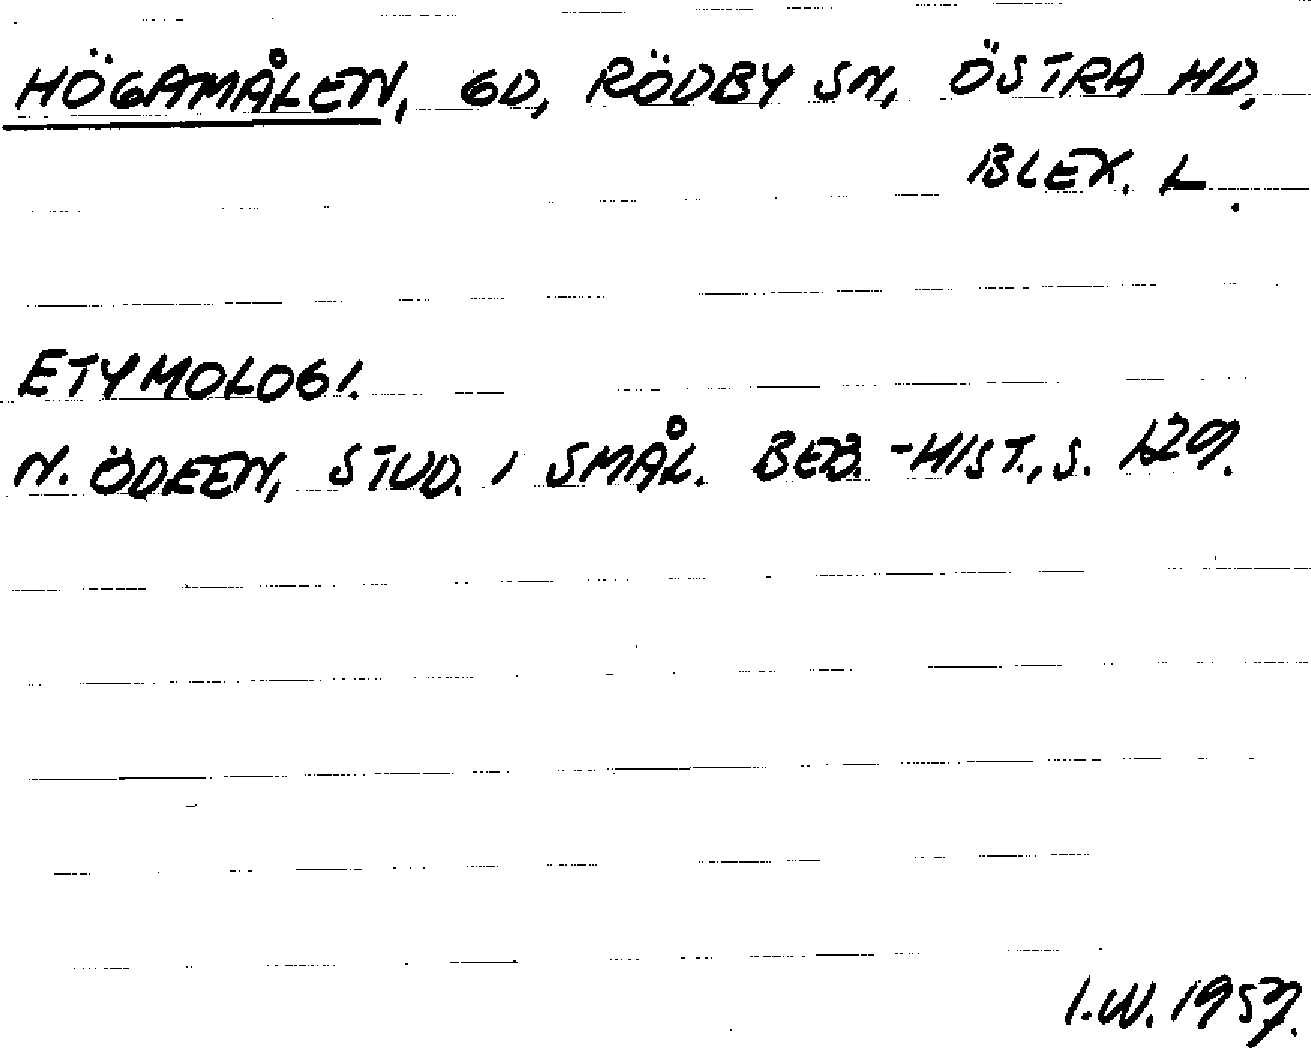 HÖGAMÅLEN, GD, RÖDBY SN, ÖSTRA HD,
BLEK. L.
ETYMOLOGI.
N. ÖDEEN, STUD. I SMÅL. BEB.-HIST., S. 129.
I.W. 1957.